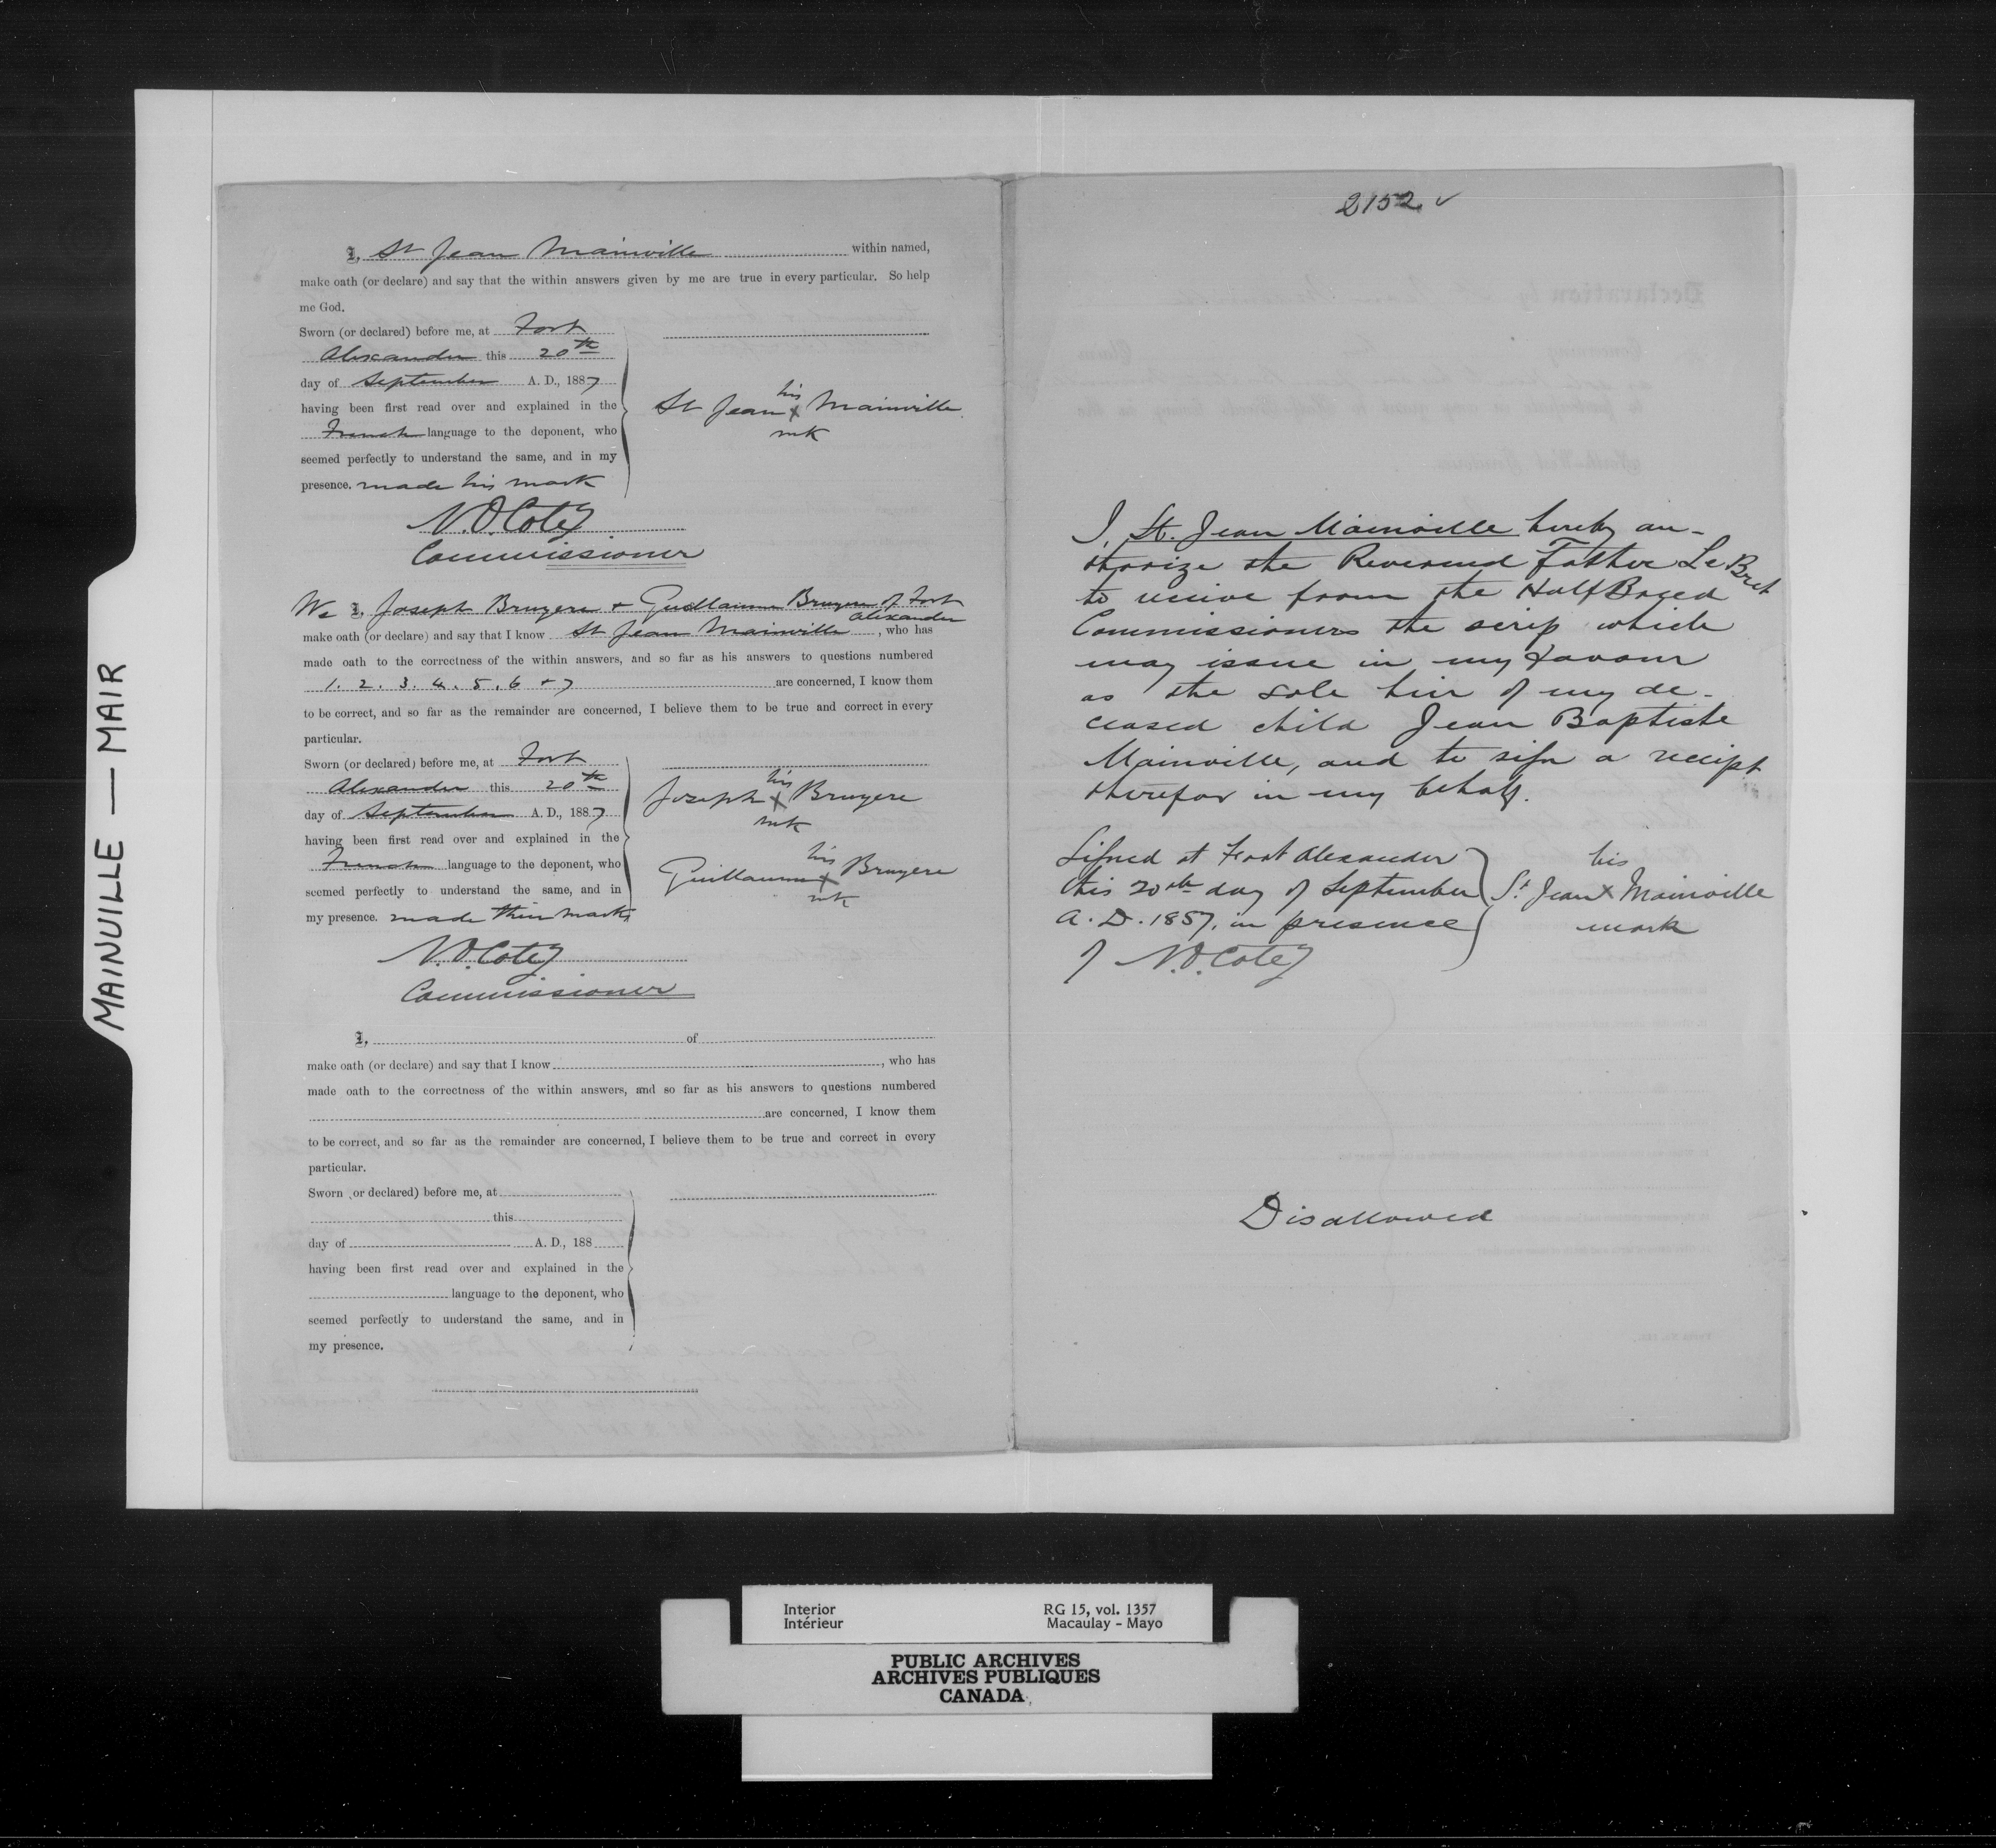 MAINVILLE — MAIR
I, St Jean Mainville within named,
make oath (or declare) and say that the within answers given by me are true in every particular. So help
me God.
Sworn (or declared) before me, at Fort
Alexander this 20th
day of September A. D., 1887
having been first read over and explained in the
French language to the deponent, who
seemed perfectly to understand the same, and in my
presence. made his mark
St Jean his x mk Mainville
N.O. Coté
Commissioner
We I, Joseph Bruyere + Guillaume Bruyere of Fort Alexander
make oath (or declare) and say that I know St Jean Mainville, who has
made oath to the correctness of the within answers, and so far as his answers to questions numbered
1. 2. 3. 4. 5. 6 + 7 are concerned, I know them
to be correct, and so far as the remainder are concerned, I believe them to be true and correct in every
particular.
Sworn (or declared) before me, at Fort
Alexander this 20th
day of September A. D., 1887
having been first read over and explained in the
French language to the deponent, who
seemed perfectly to understand the same, and in
my presence. made their marks
Joseph his x mk Bruyere
Guillaume his x mk Bruyere
N.O. Coté
Commissioner
I, of
make oath (or declare) and say that I know , who has
made oath to the correctness of the within answers, and so far as his answers to questions numbered
are concerned, I know them
to be correct, and so far as the remainder are concerned, I believe them to be true and correct in every
particular.
Sworn (or declared) before me, at
this
day of A. D., 188
having been first read over and explained in the
language to the deponent, who
seemed perfectly to understand the same, and in
my presence.
2152 ✓
I, St. Jean Mainville hereby au-
thorize the Reverend Father Le Bret
to receive from the Half Breed
Commissioners the scrip which
may issue in my favour
as the sole heir of my de-
ceased child Jean Baptiste
Mainville, and to sign a receipt
therefor in my behalf.
Signed at Fort Alexander
this 20th day of September
A. D. 1887, in presence
of N.O. Coté
his
St Jean x Mainville
mark
Disallowed
Interior RG 15, vol. 1357
Intérieur Macaulay - Mayo
PUBLIC ARCHIVES
ARCHIVES PUBLIQUES
CANADA